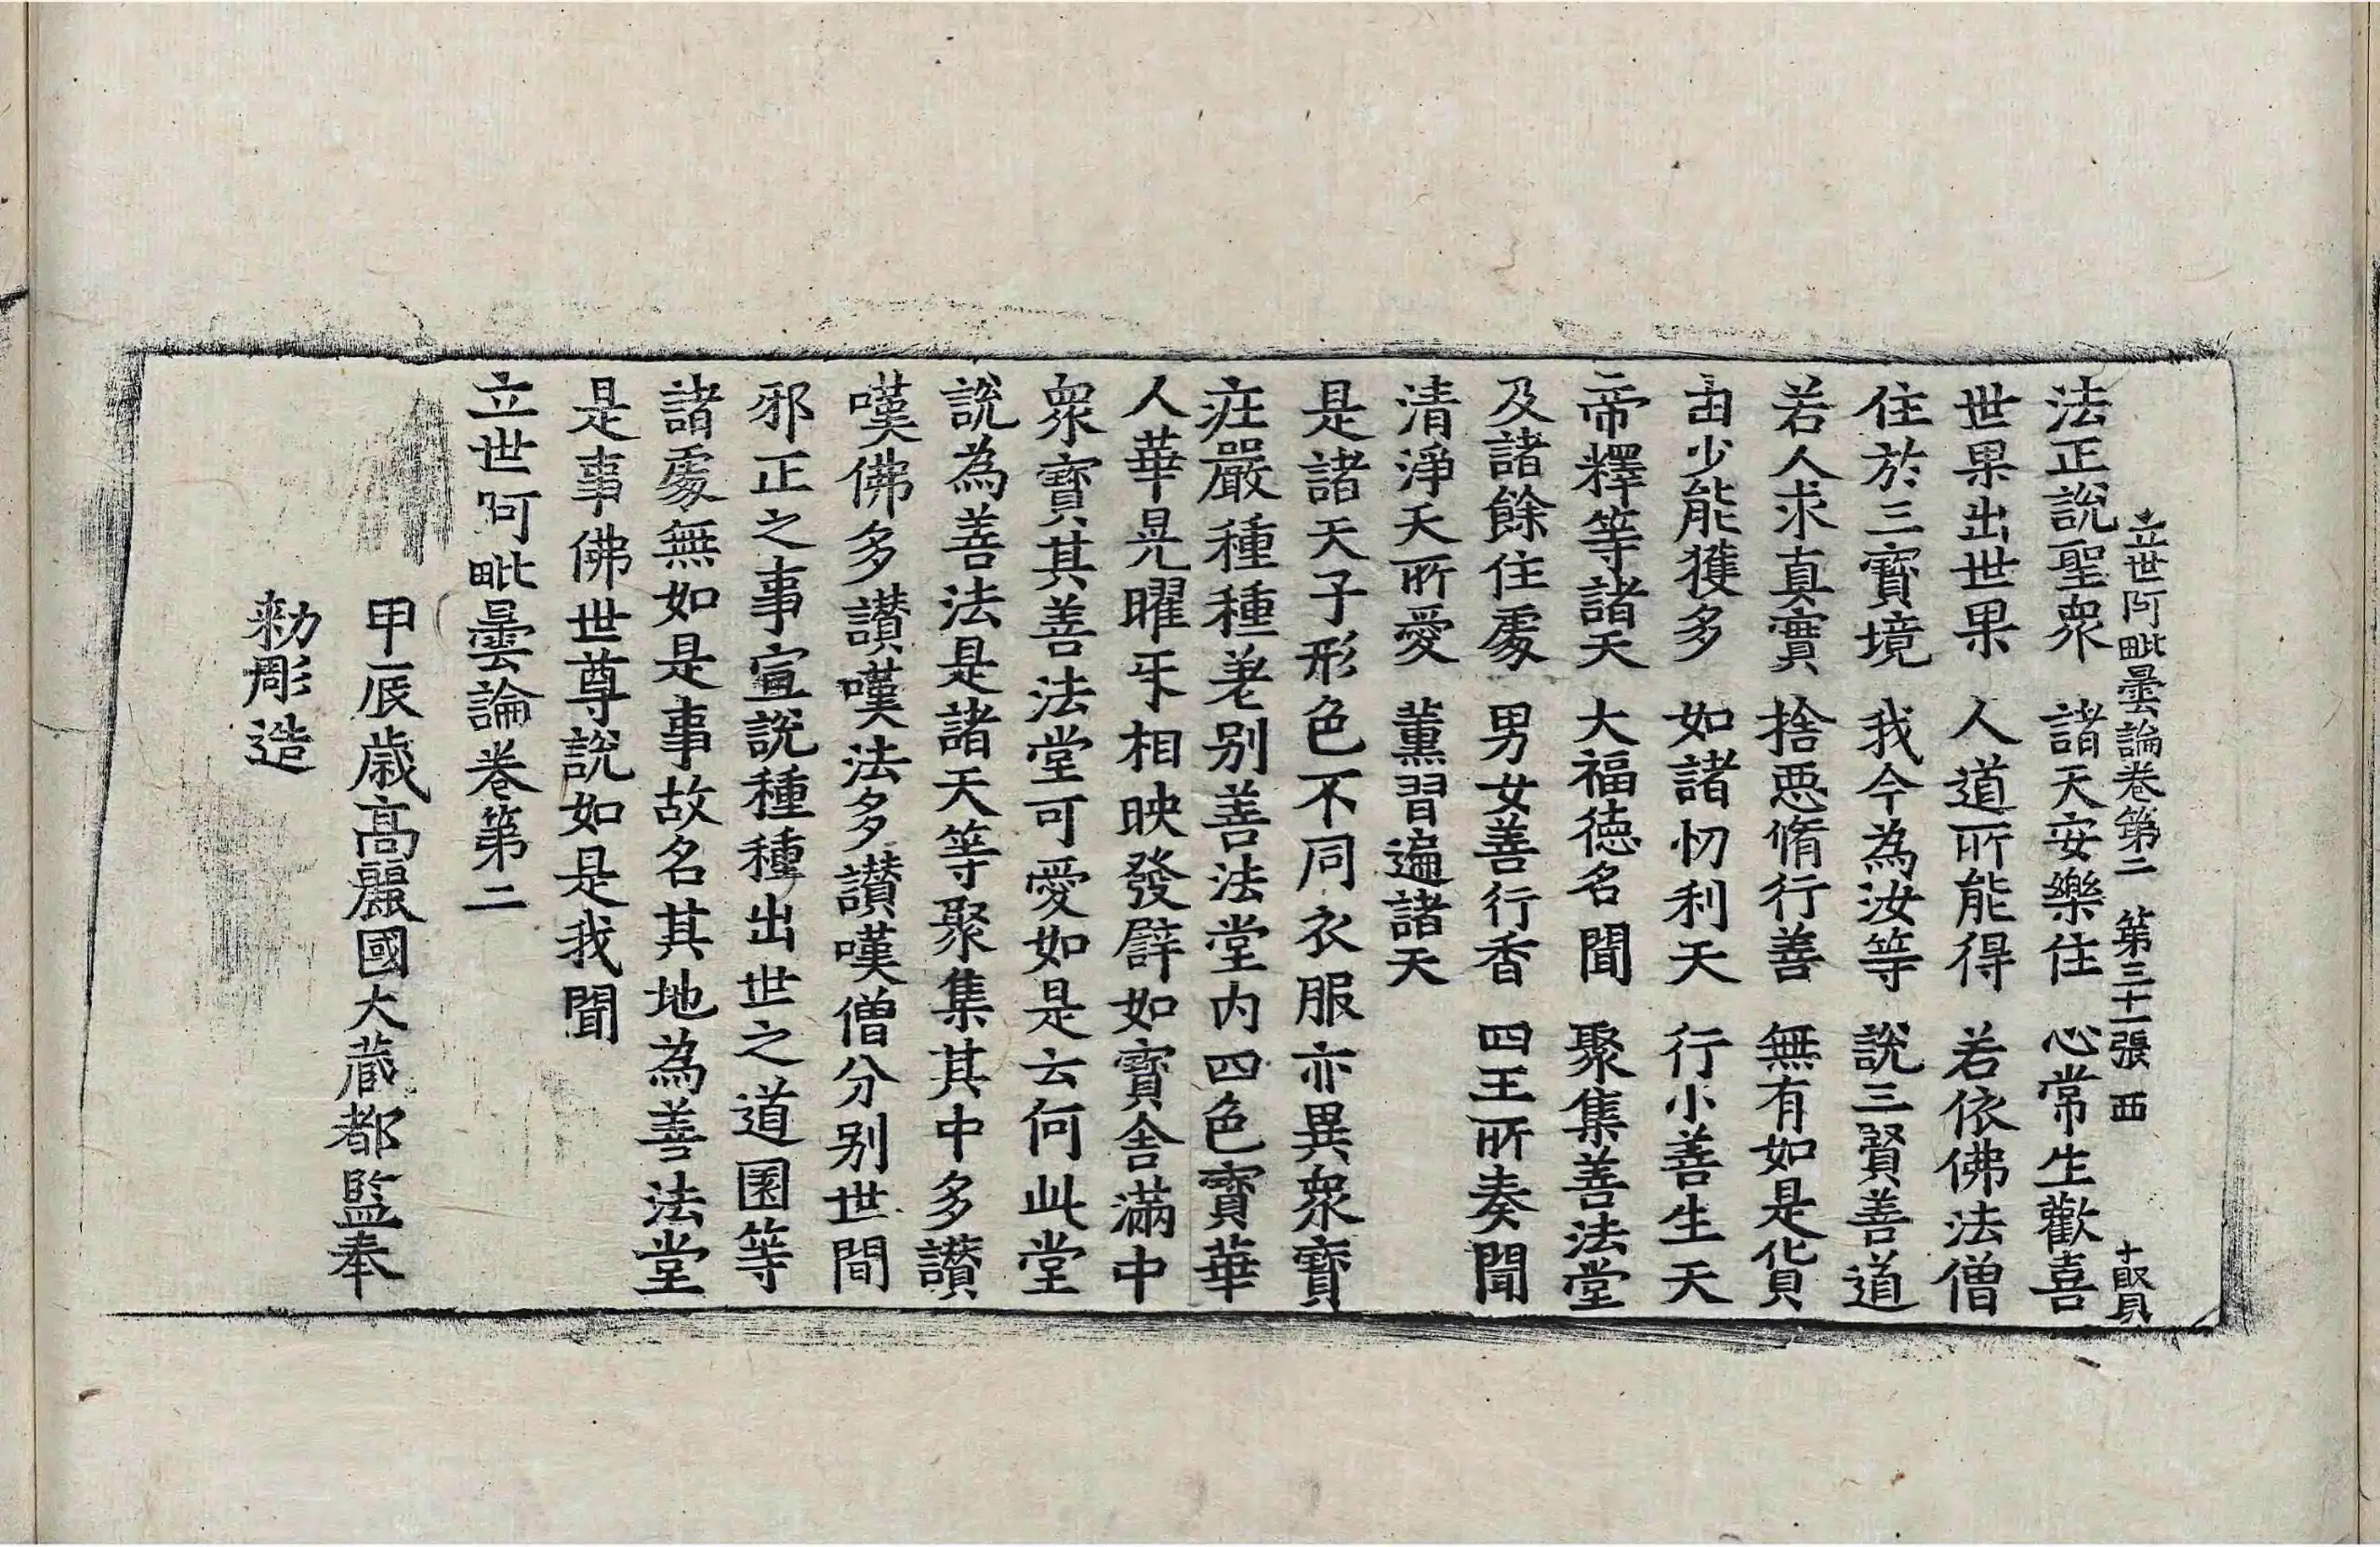 立世阿毗曇論卷第二 第三十一張 西 十取貝
法正說聖衆 諸天安樂住 心常生歡喜
世果出世果 人道所能得 若依佛法僧
住於三寶境 我今為汝等 說三賢善道
若人求真實 捨惡脩行善 無有如是貨
由少能獲多 如諸忉利天 行小善生天
帝釋等諸天 大福徳名聞 聚集善法堂
及諸餘住處 男女善行香 四王所奏聞
清淨天所愛 薰習遍諸天
是諸天子形色不同衣服亦異衆寶
莊嚴種種差別善法堂内四色寶華
人華晃曜㸦相映發譬如寶舍滿中
衆寶其善法堂可愛如是云何此堂
說為善法是諸天等聚集其中多讃
嘆佛多讃嘆法多讃嘆僧分別世間
邪正之事宣說種種出世之道園等
諸處無如是事故名其地為善法堂
是事佛世尊說如是我聞
立世阿毗曇論卷第二
甲辰歲高麗國大藏都監奉
勑彫造